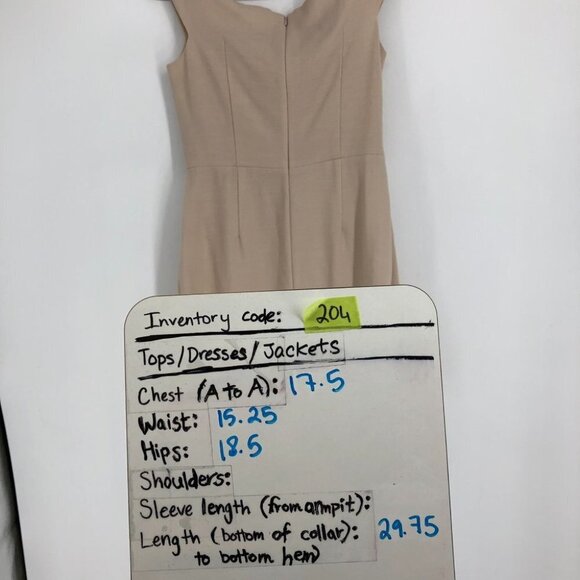 Inventory code: 204
Tops/Dresses/Jackets
Chest (A to A): 17.5
Waist: 15.25
Hips: 18.5
Shoulders:
Sleeve length (from armpit):
Length (bottom of collar): 29.75
to bottom hem)